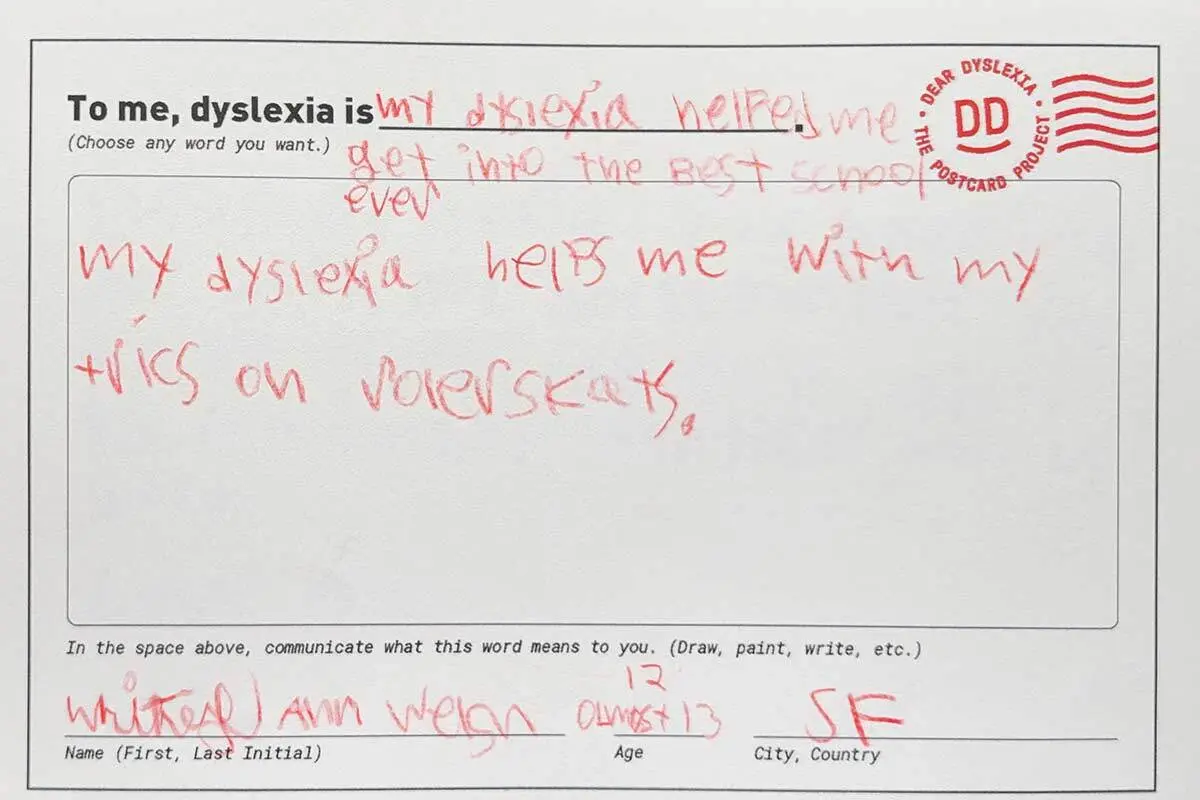 To me, dyslexia is my dyslexia helped me
(Choose any word you want.)
get into the Best school
ever
DEAR DYSLEXIA
DD
THE POSTCARD PROJECT
my dyslexia helps me with my
trics on rolerskats.
In the space above, communicate what this word means to you. (Draw, paint, write, etc.)
Ann
12
almost 13
SF
Name (First, Last Initial)
Age
City, Country